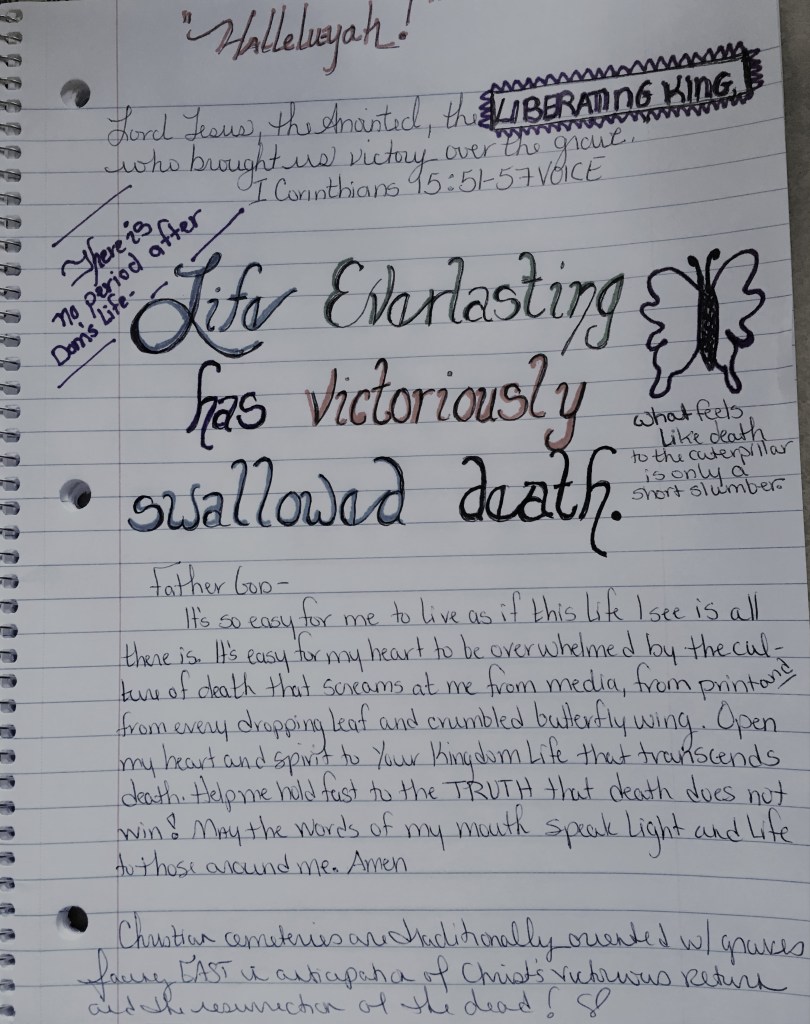 "Halleluyah!
Lord Jesus, the Anointed, the LIBERATING KING,
who brought us victory over the grave.
I Corinthians 15:51-57 VOICE
There is
no period after
Dom's Life-
Life Everlasting
has victoriously
swallowed death.
what feels
like death
to the caterpillar
is only a
short slumber.
Father GOD-
It's so easy for me to live as if this life I see is all
there is. It's easy for my heart to be overwhelmed by the cul-
ture of death that screams at me from media, from print and
from every dropping leaf and crumbled butterfly wing. Open
my heart and spirit to Your Kingdom Life that transcends
death. Help me hold fast to the TRUTH that death does not
win! May the words of my mouth speak Light and Life
to those around me. Amen
Christian cemeteries are traditionally oriented w/ graves
facing EAST in anticipation of Christ's victorious return
and the resurrection of the dead!